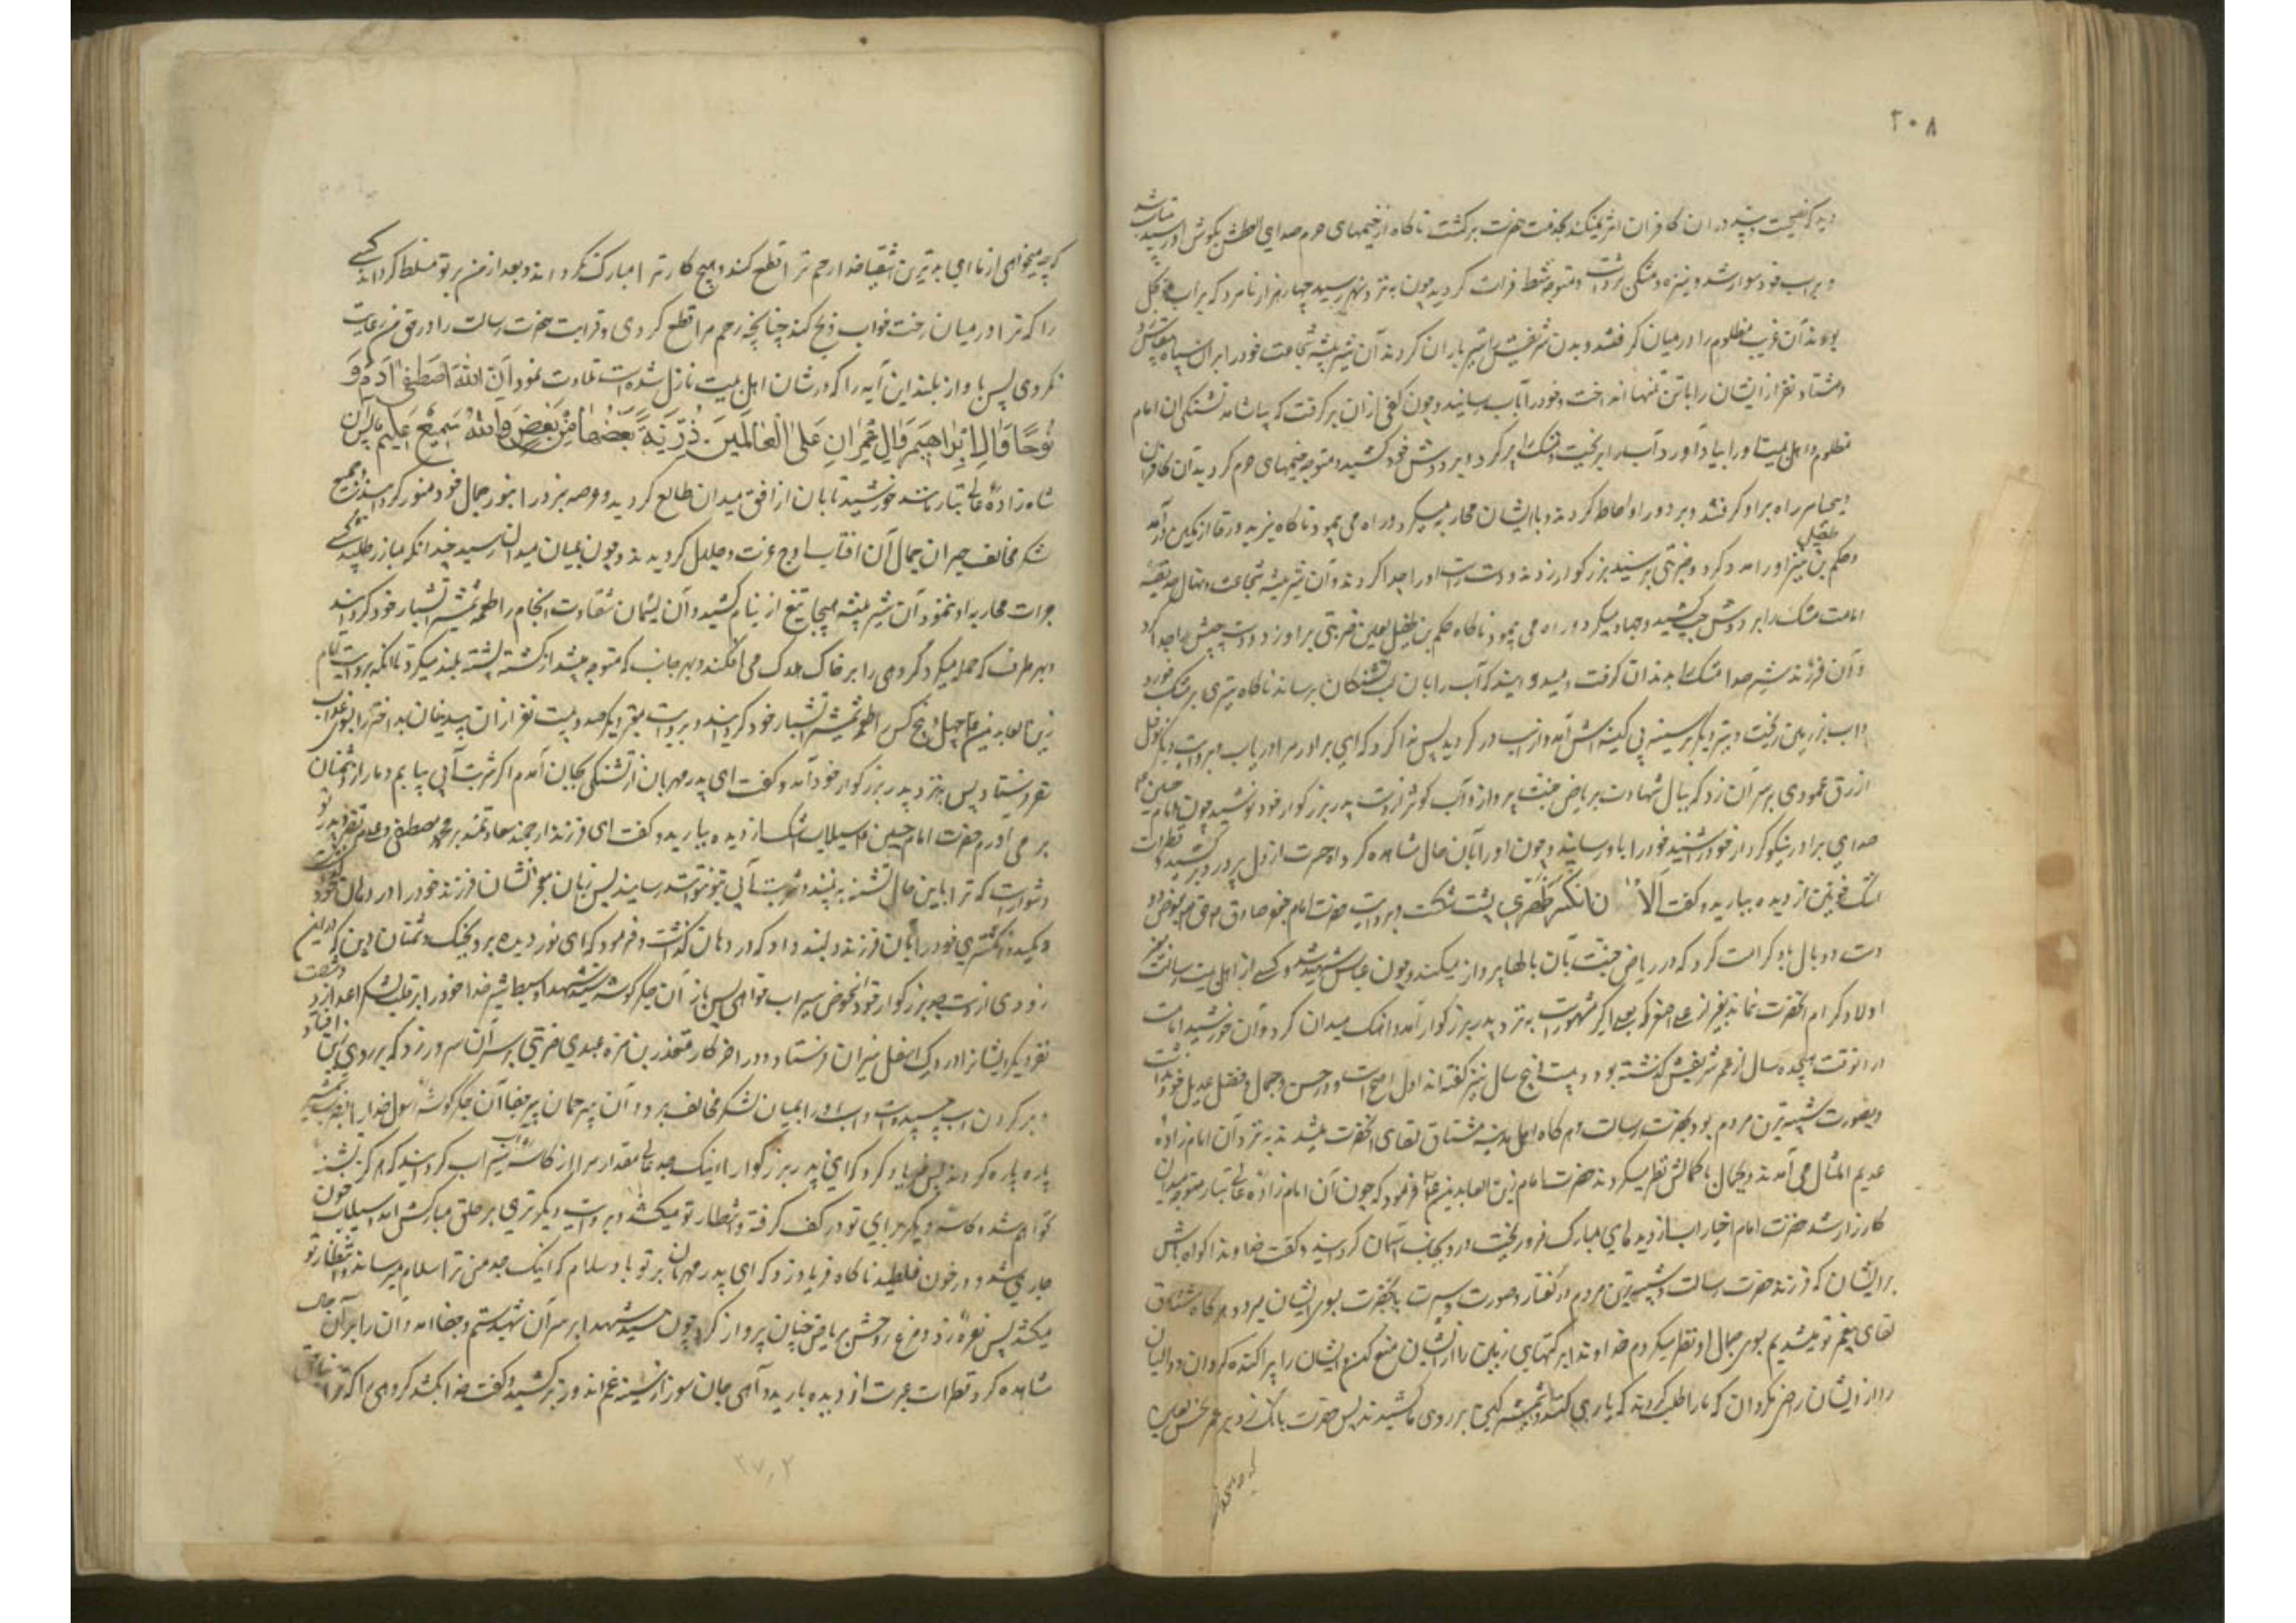 ۲۰۸
دید که نصیحت و پند در ان کافران اثر نمیکند بخدمت حضرت برکشت ناکاه از خیمهای حرم صدای العطش بکوش او رسید بیتاب شد
و بر اسب خود سوار شد و نیزه و مشکی برداشت و متوجه شط فرات کردید چون به نزد نهر رسید چهار هزار نامرد که بر اب موکل
بودند آن غریب مظلوم را در میان کرفتند و بدن شریفش را تیر باران کردند آن شیر بیشه شجاعت خود را بر ان سپاه بیقیاس زد
و هشتاد نفر از ایشان را با تن تنها انداخت و خود را بآب رسانید و چون کفی از ان برکرفت که بیاشامد تشنکی ان امام
مظلوم و اهل بیت او را بیاد آورد آب را بریخت و مشک را پر کرد و بر دوش خود کشید و متوجه خیمهای حرم کردید آن کافران
بیحیا سر راه بر او کرفتند و بر دور او احاطه کردند و با ایشان محاربه میکرد و راه می پیمود ناکاه یزید ورقا از کمین در آمد
و حکیم بن طفیل نیز او را مدد کرد و ضربتی بر سید بزرکوار زدند و دست راست او را جدا کردند و آن شیر بیشه شجاعت و نهال حدیقهٔ
امامت مشک را بر دوش چپ کشید و جهاد میکرد و راه می پیمود ناکاه حکیم بن طفیل لعین ضربتی بر او زد و دست چپش را جدا کرد
و آن فرزند شیر خدا مشک را بدندان کرفت و میدوید که آب را بان لب تشنکان برساند ناکاه تیری بر مشک خورد
و اب بر زمین ریخت و تیر دیکر بر سینه بی کینه اش آمد و از اسب در کردید پس ندا کرد که ای برادر مرا دریاب و بروایت دیکر نوفل
ازرق عمودی بر سر آن زد که ببال شهادت بریاض جنت پرواز و آب کوثر از دست پدر بزرکوار خود نوشید چون امام حسین ع
صدای برادر نیکو کردار خود را شنید خود را باو رسانید و چون او را بآن حال مشاهده کرد آه حسرت از دل پر درد برکشید و قطرات
اشک خونین از دیده ببارید و کفت الان انکسر ظهری پشت شکست و بروایت حضرت امام جعفر صادق حق تعالی بعوض دو
دست دو بال باو کرامت کرد که در ریاض جنت بآن بالها پرواز میکند و چون عباس شهید شد و کسی از اهل بیت رسالت بجز
اولاد کرام انحضرت نماند بغیر از علی اصغر که بعلی اکبر مشهورست به نزد پدر بزرکوار آمد و اهنک میدان کرد و آن خورشید امامت
در انوقت هیجده سال از عمر شریفش کذشته بود و بیست و پنج سال نیز کفته اند اول اصح است و در حسن و جمال و فضل عدیل خود نداشت
و بصورت شبیه ترین مردم بود بحضرت رسالت و هر کاه اهل مدینه مشتاق لقای انحضرت میشدند به نزد آن امام زادهٔ
عدیم المثال می آمدند و بجمال باکمالش نظر میکردند حضرت امام زین العابدین ع فرمود که چون آن امام زادهٔ عالی تبار متوجه میدان
کارزار شد حضرت امام اخیار اب از دیدهای مبارک فرو ریخت و رو بجانب آسمان کردانید و کفت خداوندا کواه باش
بر ایشان که فرزند حضرت رسالت و شبیه ترین مردم در کفتار و صورت و سیرت بانحضرت بسوی ایشان میرود و هر کاه مشتاق
لقای پیغمبر تو میشدیم بسوی جمال او نظر میکردم خداوندا برکتهای زمین را از ایشان منع کن و ایشان را پراکنده کردان و والیان
را از ایشان راضی مکردان که ما را طلب کردند که یاری کنند و شمشیر کین بر روی ما کشیدند پس حضرت بانک زد بر عمر نحس لعین
که چه میخواهی از ما ای بدترین اشقیا خدا رحم ترا قطع کند و هیچ کار ترا مبارک نکرداند و بعد از من بر تو مسلط کرداند کسی
را که ترا در میان رخت خواب ذبح کند چنانچه رحم مرا قطع کردی و قرابت حضرت رسالت را در حق من رعایت
نکردی پس باواز بلند این آیه را که در شان اهل بیت نازل شده است تلاوت نمود اَنّ اللّهَ اصْطَفی آدَمَ وَ
نُوحًا وَآلَ اِبْرَاهِیمَ وَآلَ عِمْرَانَ عَلَی الْعَالَمِینَ. ذُرِّیَّةً بَعْضُهَا مِنْ بَعْضٍ وَاللّهُ سَمِیعٌ عَلِیمٌ پس آن
شاه زادهٔ عالی تبار مانند خورشید تابان از افق میدان طالع کردید و عرصه نبرد را بنور جمال خود منور کردانید و جمیع
لشکر مخالف حیران جمال آن افتاب اوج عزت و جلال کردیدند و چون بمیان میدان رسید چندانکه مبارز طلبید کسی
جرات محاربه او ننمود آن شیر بیشه هیجا تیغ از نیام کشید و آن لئیمان شقاوت انجام را طعمه شمشیر آتشبار خود کردانید
و بهر طرف که حمله میکرد کروهی را بر خاک هلاک می افکند و بهر جانب که متوجه میشد از کشته پشته بلند میکرد تا انکه بروایت امام
زین العابدین ع چهل و پنج کس را طعمه شمشیر آتشبار خود کردانید و بروایت دیکر صد و بیست نفر از ان بیدینان بداختر را بسوی عذاب
سقر فرستاد پس بنزد پدر بزرکوار خود آمد و کفت ای پدر مهربان از تشنکی بجان آمدم اکر شربت آبی بیابم دمار از دشمنان
بر می آورم حضرت امام حسین ع سیلاب اشک از دیده ببارید و کفت ای فرزند ارجمند سعادتمند بر محمد مصطفی و علی مرتضی و پدر تو
دشوار است که ترا باین حال تشنه به بیند و شربت آبی بتو نتواند رسانید پس زبان معجز نشان فرزند خود را در دهان خود کذاشت
و مکید و انکشتری خود را بآن فرزند دلبند داد که در دهان کذاشت و فرمود که ای نور دیده برو بجنک دشمنان دین که در این
زودی از دست جد بزرکوار خود از حوض سیراب خواهی پس باز آن جکر کوشه سید شهدا و سبط شیر خدا خود را بر قلب لشکر اعدا زد و شصت
نفر دیکر ایشان را در درک اسفل نیران فرستاد و در اخر کار منقذ بن مره عبدی ضربتی بر سر آن سرور زد که بر روی زین افتاد
و بر کردن اسب چسپید و اسب او را بمیان لشکر مخالف برد و آن بیرحمان پر جفا آن جکر کوشهٔ رسول خدا را بضرب شمشیر
پاره پاره کردند پس فریاد کرد که ای پدر بزرکوار اینک جد عالی مقدار مرا از کاسه شراب سیراب کردانید که هرکز تشنه
نخواهم شد و کاسه دیکر برای تو در کف کرفته و انتظار تو میکشد و بروایت دیکر تیری بر حلق مبارکش امد و سیلاب خون
جاری شد و در خون غلطید ناکاه فریاد زد که ای پدر مهربان بر تو باد سلام که اینک جد من ترا سلام میرساند و انتظار تو
میکشد پس نعره زد و مرغ روحش بریاض جنان پرواز کرد چون سید شهدا بر سر آن شهید ستم و جفا امد و آن را بر آن حال
مشاهده کرد قطرات عبرت از دیده بارید و آهی جان سوز از سینه غم اندوز برکشید و کفت خدا بکشد کروهی را که ترا